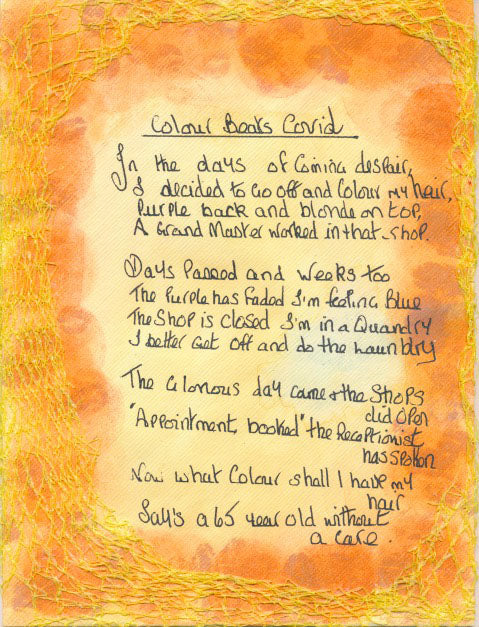 Colour Beats Covid
In the days of Coming despair,
I decided to Go off and Colour my hair,
Purple back and blonde on top,
A Grand Master worked in that shop.
Days Passed and Weeks too
The Purple has Faded I'm feeling Blue
The Shop is closed I'm in a Quandry
I better Get off and do the Laundry
The Glorious day came & the Shops
did Open
"Appointment, booked" the Receptionist
has spoken
Now what Colour shall I have my
hair
Say's a 65 year old without
a care.